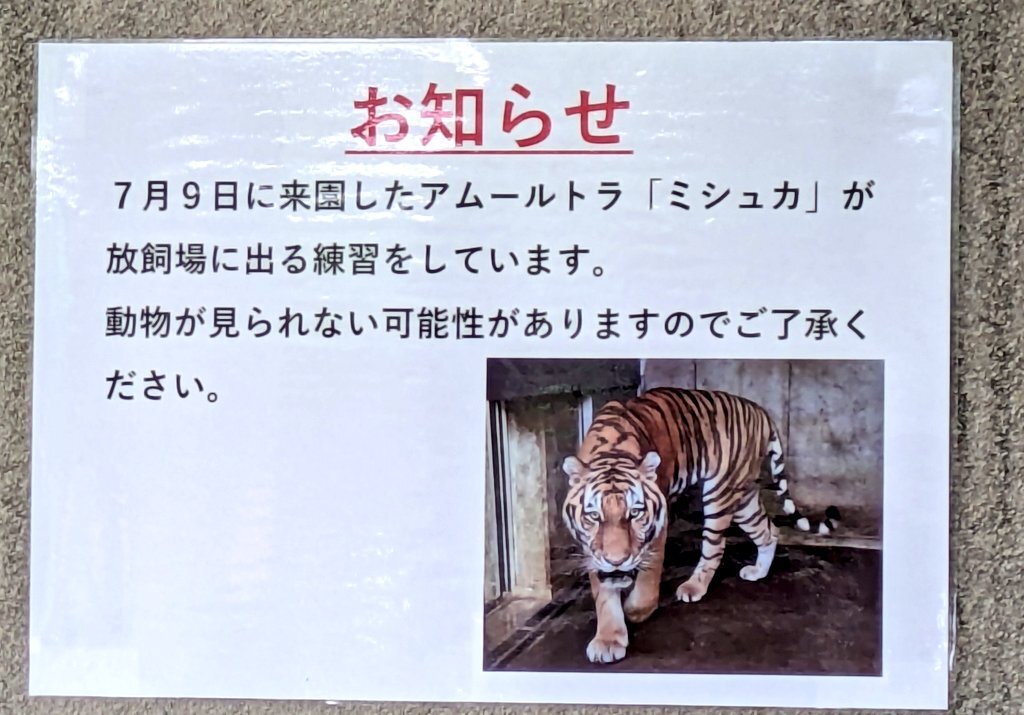 お知らせ
７月９日に来園したアムールトラ「ミシュカ」が
放飼場に出る練習をしています。
動物が見られない可能性がありますのでご了承く
ださい。